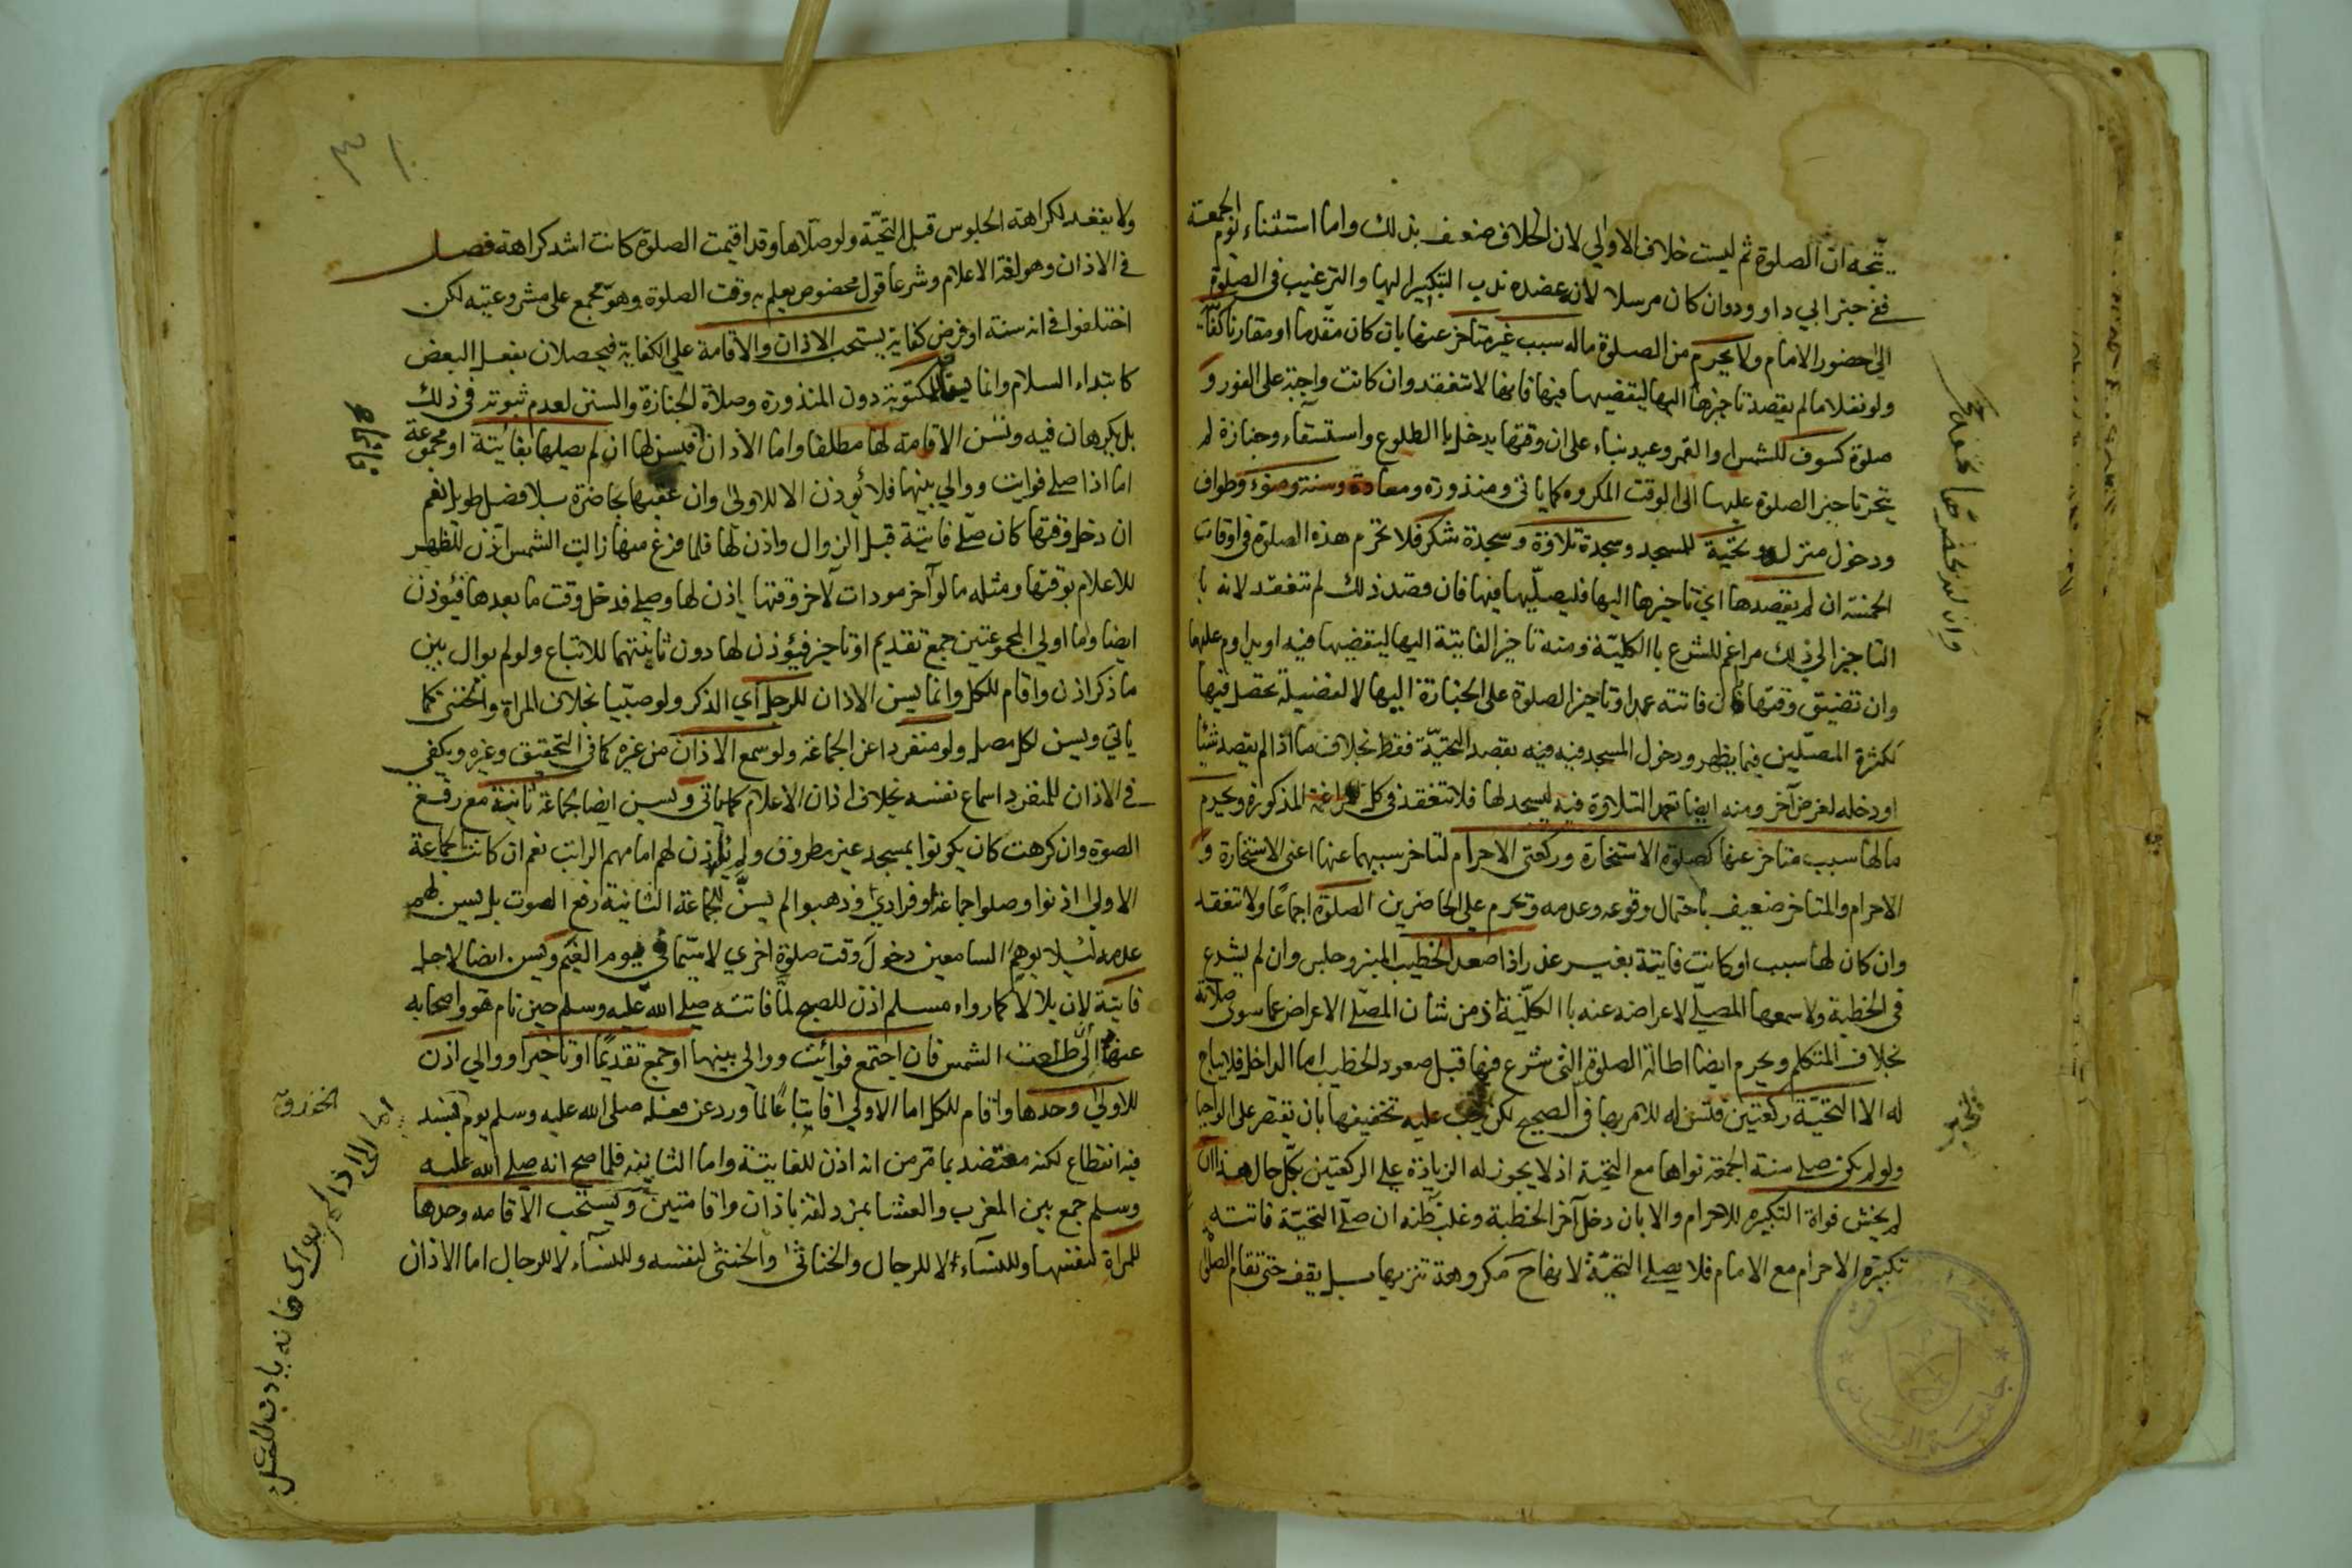 يتجه ان الصلوة ثم ليست خلاف الاولي لان الخلاف ضعف بذلك واما استثناء يوم الجمعة
ففي خبر ابي داوود وان كان مرسلا لانه عضده ندب التبكير اليها والترغيب في الصلوة
الي حضور الامام ولا يحرم من الصلوة ماله سبب غير متاخر عنها بان كان متقدما او مقارنا كفائتة
ولو نفلا ما لم يقصد تاخيرها اليها ليقضيها فيها فانها لا تنعقد وان كانت واجبة على الفور و
صلوة كسوف للشمس والقمر وعيد بناء على ان وقتها يدخل با الطلوع واستسقاء وجنازة لم
يتحر تاخير الصلوة عليها الى الوقت المكروه كما ياتي ومنذورة ومعادة وسنة وضوء وطواف
ودخول منزل وتحية للمسجد وسجدة تلاوة وسجدة شكر فلا تحرم هذه الصلوة في اوقات
الخمسة ان لم يقصدها اي تاخيرها اليها فليصليها فيها فان قصد ذلك لم تنعقد لانه با
التاخير الي ذلك مراغم للشرع با الكلية ومنه تاخير الفايتة اليها ليقضيها فيه او يداوم عليها
وان تضيق وقتها كان فاتته عمدا وتاخير الصلوة على الجنازة اليها لا لفضيلة تحصل فيها
لكثرة المصلين فيما يظهر ودخول المسجد فيه فيه بقصد التحية فقط بخلاف ما اذا لم يقصد شيئا
او دخله لغرض آخر ومنه ايضا تعمد التلاوة فيه ليسجد لها فلا تنعقد في كل للمراغمة المذكورة ويحرم
ما لها سبب متاخر عنها كصلوة الاستخارة وركعتي الاحرام لتاخر سببهما عنها اعني الاستخارة و
الاحرام والمتاخر ضعيف باحتمال وقوعه وعدمه وتحرم على الحاضرين الصلوة اجماعًا ولا تنعقد
وان كان لها سبب او كانت فايتة بغير عذر اذا صعد الخطيب المنبر وجلس وان لم يشرع
في الخطبة ولا سمعها المصلي لاعراضه عنه با الكلية اذ من شان المصلي الاعراض عما سوى صلاته
بخلاف المتكلم ويحرم ايضا اطالة الصلوة التي شرع فيها قبل صعود الخطيب اما الداخل فلا يباح
له الا التحية ركعتين فتسن له للامر بها في الصحيح لكن يجب عليه تخفيفها بان يقتصر على الواجبا
ولو لم يكن صلى سنة الجمعة نواها مع التحية اذ لا يجوز له الزيادة على الركعتين بكل حال هذا ان
لم يخش فواة التكبيره للاحرام والا بان دخل آخر الخطبة وغلب ظنه ان صلى التحية فاتته
تكبيرة الاحرام مع الامام فلا يصلي التحية لانها ح مكروهة تنزيها بل يقف حتى تقام الصلو
ولا يقعد لكراهة الجلوس قبل التحية ولو صلاها وقد اقيمت الصلوة كانت اشد كراهة فصل
في الاذان وهو لغة الاعلام وشرعا قول مخصوص يعلم به وقت الصلوة وهو مجمع على مشروعيته لكن
اختلفوا في انه سنة او فرض كفاية يستحب الاذان والاقامة علي الكفاية فيحصلان بفعل البعض
كابتداء السلام وانما للمكتوبة دون المنذورة وصلاة الجنازة والسنن لعدم ثبوته في ذلك
بل يكرهان فيه وتسن الاقامة لها مطلقا واما الاذان فيسن لها ان لم يصلها بفائتة او مجموعة
اما اذا صلى فوايت ووالي بينها فلا يُوذن الا للاولى وان عقبها بحاضرة بلا فصل طويل نعم
ان دخل وقتها كان صلى فايتة قبل الزوال واذن لها فلما فرغ منها زالت الشمس اذن للظهر
للاعلام بوقتها ومثله ما لو اخر مودات لآخر وقتها اذن لها وصلى فدخل وقت ما بعدها فيُوذن
ايضا واما اولي المجموعتين جمع تقديم او تاخير فيُوذن لها دون ثانيتهما للاتباع ولو لم يوال بين
ما ذكر اذن واقام للكل وانما يسن الاذان للرجل أي الذكر ولو صبيا بخلاف المراة والخنثى كما
ياتي ويسن لكل مصل ولو منفردا عن الجماعة ولو سمع الاذان من غيره كما في التحقيق وغيره ويكفي
في الاذان للمنفرد اسماع نفسه بخلاف اذان الاعلام كما ياتي ويسن ايضا لجماعة ثانية مع رفع
الصوة وان كرهت كان يكونوا بمسجد غير مطروق ولم ياذن لهم امامهم الراتب نعم ان كانت الجماعة
الاولى اذنوا وصلوا جماعة او فرادي وذهبوا لم يسن للجماعة الثانية رفع الصوت بل يسن لهم
عدمه لئيلا يوهم السامعين دخول وقت صلوة اخري لا سيما في يوم الغيم ويسن ايضا لاجل
فايتة لان بلالا كما رواه مسلم اذن للصبح لما فاتته صلى الله عليه وسلم حين نام هو واصحابه
عنها الى ان طلعت الشمس فان اجتمع فوائت ووالى بينها او جمع تقديما او تاخيرا ووالي اذن
للاولى وحدها واقام للكل اما الاولي اتباعًا لما ورد عن فعله صلى الله عليه وسلم يوم بسند
فيه انقطاع لكنه معتضد بما مر من انه اذن للفايتة واما الثانية فلما صح انه صلى الله عليه
وسلم جمع بين المغرب والعشا بمزدلفة باذان واقامتين ويستحب الاقامه وحدها
للمراة لنفسها وللنسآء لا للرجال والخناثى وللخنثى لنفسه وللنسآء لا للرجال اما الاذان
الخندق